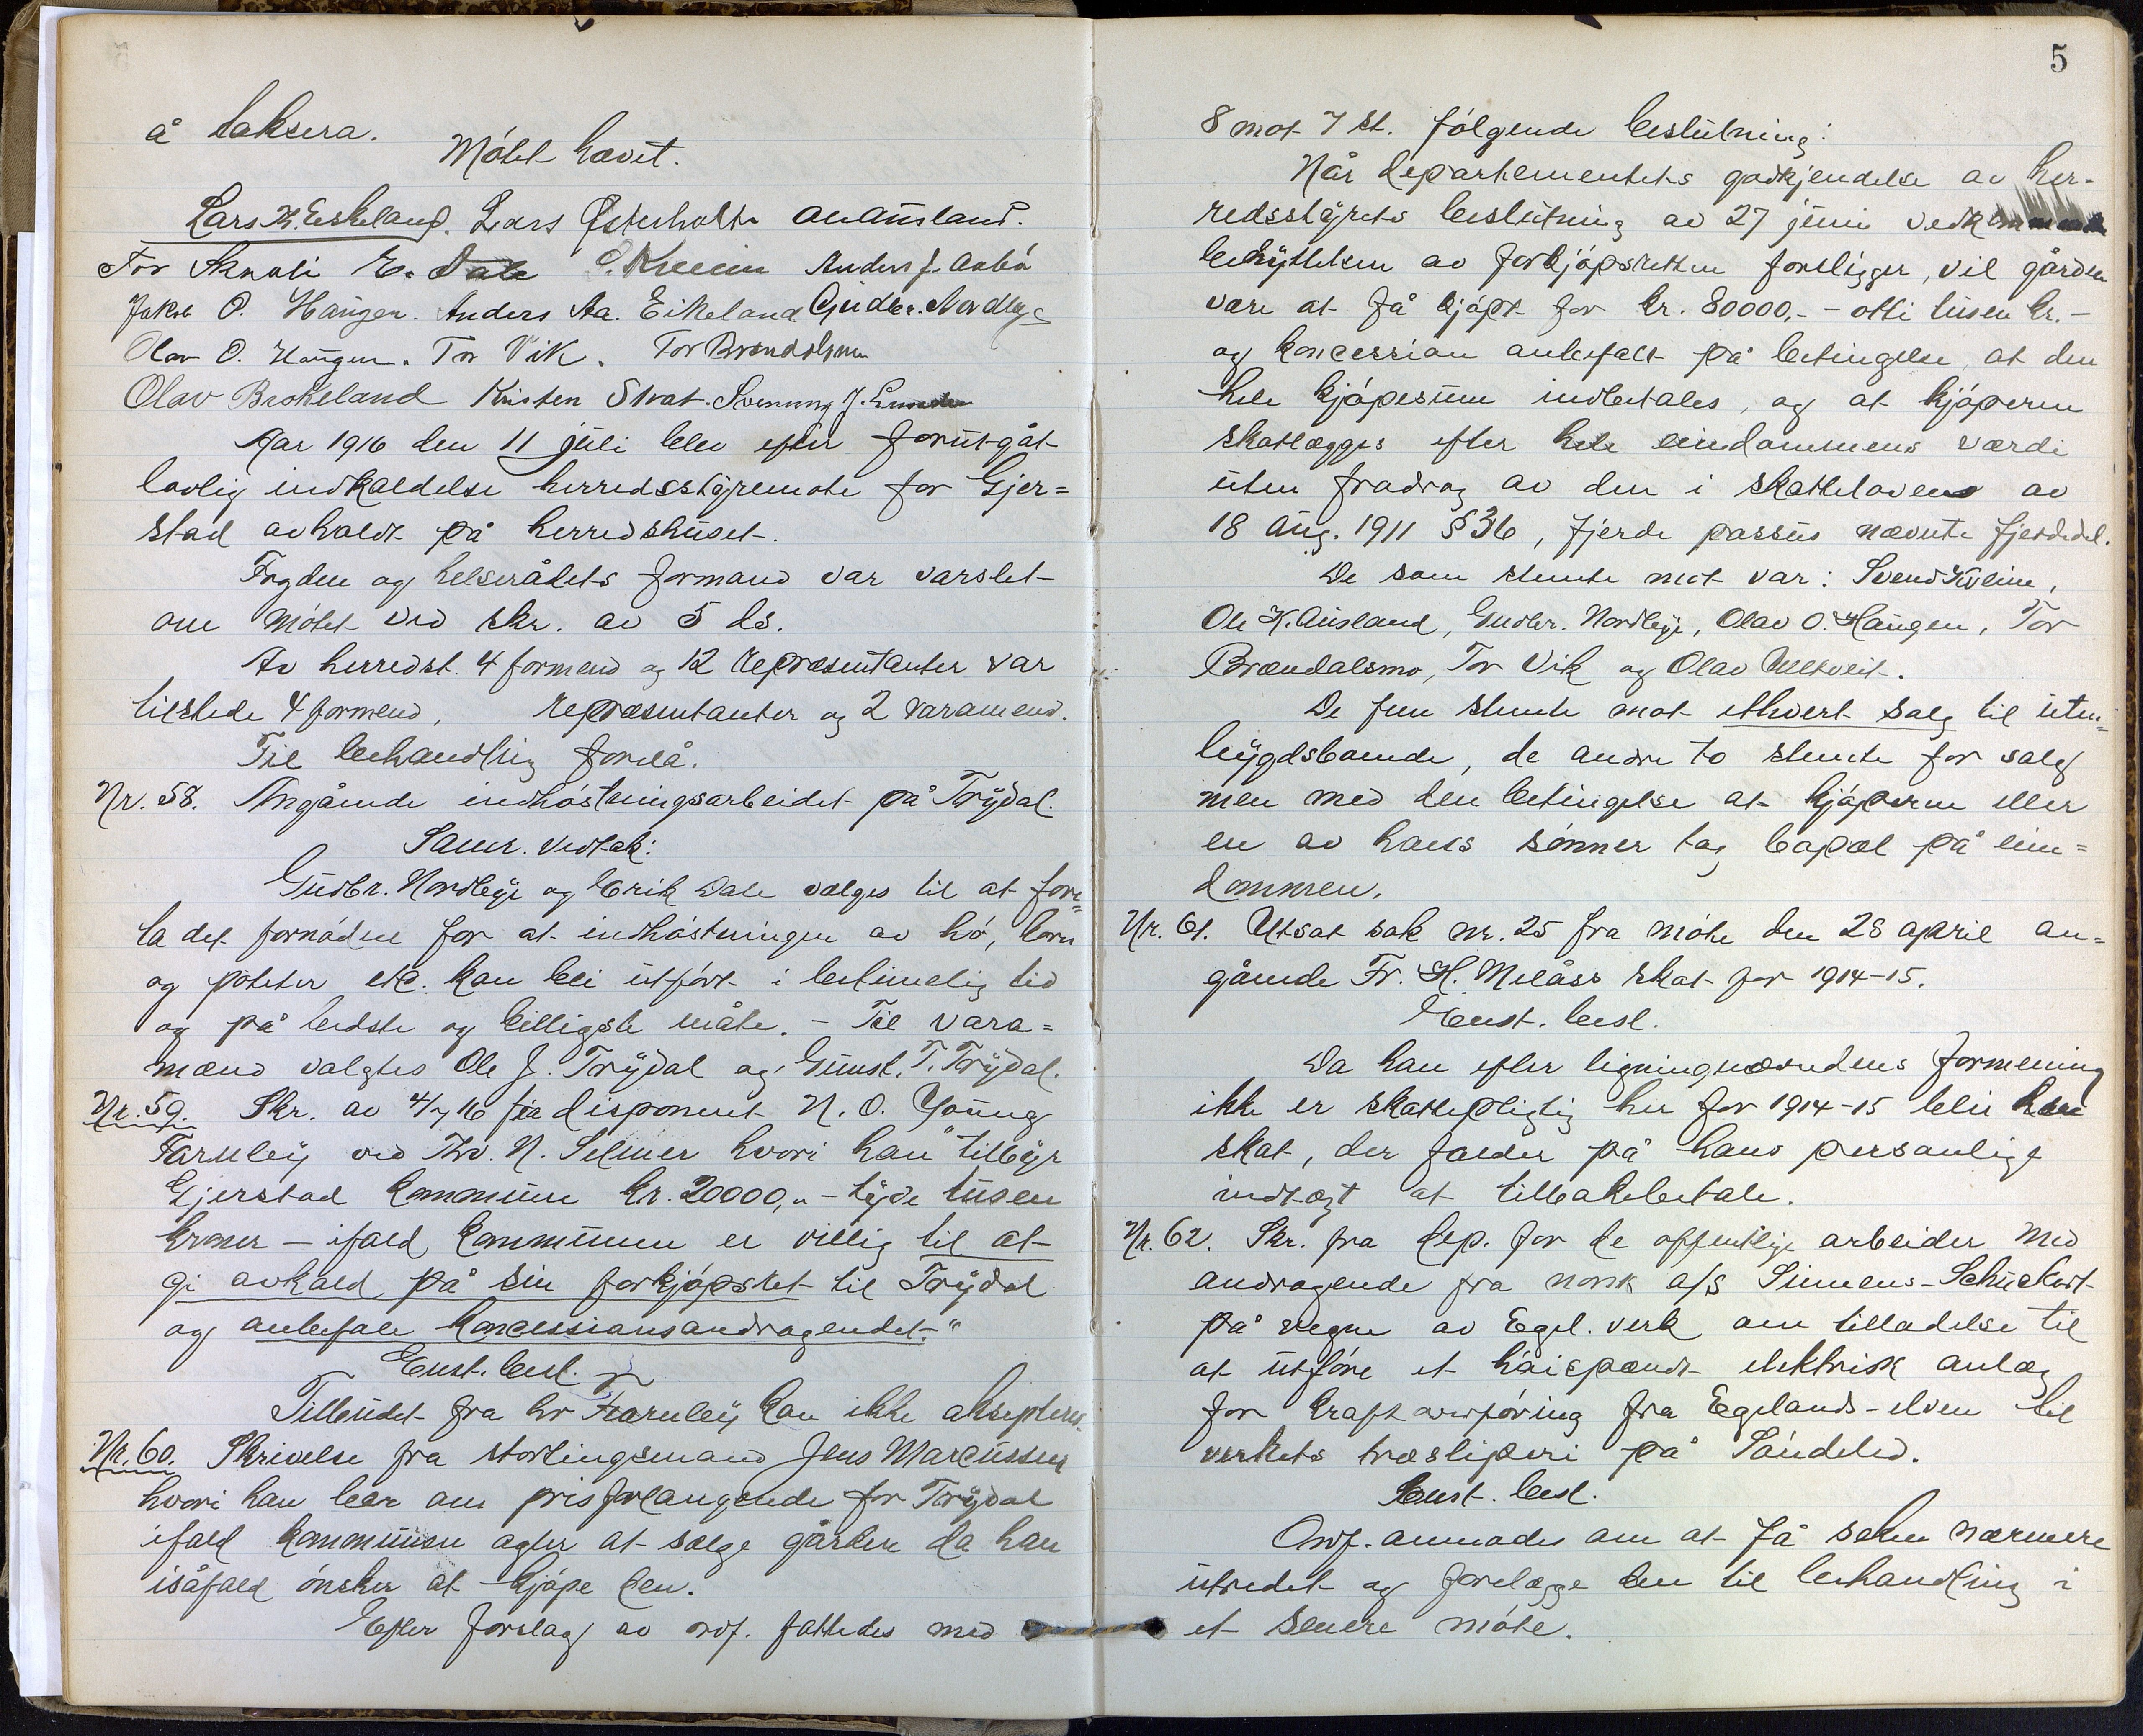 å taksera.
Møtet hævet.
Lars K. Eskeland. Lars Østerholt. OlAusland.
Tor Skarali E. Dale S. Kveim Anders J. Aabø
Jakob O. Haugen. Anders Aa. Eikeland Gudbr. Nordbye
Olav O. Haugen. Tor Vik. Tor Brændalsmo
Olav Brokeland Kristen Strat. Svenung J. Lunden
Aar 1916 den 11 juli blev efter forutgåt
lovlig indkaldelse herredsstyremøte for Gjer=
stad avholdt på herredshuset.
Fogden og helserådets formand var varslet
om møtet ved skr. av 5 ds.
Av herredst. 4 formend og 12 repræsentanter var
tilstede 4 formend, repræsentanter og 2 varamend.
Til behandling forelå.
Nr. 58. Angående indhøstningsarbeidet på Trydal.
Samr. vedtak:
Gudbr. Nordbye og Erik Dale vælges til at fore=
ta det fornødne for at indhøstningen av hø, korn
og poteter etc. kan bli utført i betimelig tid
og på bedste og billigste måte. - Til vara=
mænd valgtes Ole J. Trydal og Gunst. T. Trydal.
Nr. 59. Skr. av 4/7 16 fra disponent N. O. Young
Farnley ved Thv. N. Selmer hvori han "tilbyr
Gjerstad kommune kr. 20000,- - tyve tusen
kroner - ifald kommunen er villig til at
gi avkald på sin forkjøpsret til Trydal
og anbefale koncessionsandragendet."
Enst. besl.
Tilbudet fra hr Farnley kan ikke aksepteres.
Nr. 60. Skrivelse fra stortingsmand Jens Marcussen
hvori han ber om prisforlangende for Trydal
ifald kommunen agter at sælge gården da han
isåfald ønsker at kjøpe den.
Efter forslag av ordf. fattedes med
5
8 mot 7 st. følgende beslutning:
Når departementets godkjendelse av her-
redsstyrets beslutning av 27 juni vedkommende
benyttelsen av forkjøpsretten foreligger, vil gården
være at få kjøpt for kr. 80000,- - otti tusen kr. -
og koncession anbefalt på betingelse, at den
hele kjøpesum indbetales, og at kjøperen
skatlægges efter hele eindommens værdi
uten fradrag av den i skatteloven av
18 aug. 1911 § 36, fjerde passus nævnte fjerdedel.
De som stemte mot var: Svend Kveim,
Ole K. Ausland, Gudbr. Nordbye, Olav O. Haugen, Tor
Brændalsmo, Tor Vik og Olav Ulltveit.
De fem stemte mot ethvert salg til uten=
bygdsboende, de andre to stemte for salg
men med den betingelse at kjøperen eller
en av hans sønner tog bopæl på ein=
dommen.
Nr. 61. Utsat sak nr. 25 fra møte den 28 april an=
gående Fr. H. Melåss skat for 1914-15.
Enst. besl.
Da han efter ligningnævndens formening
ikke er skattepligtig her for 1914-15 blir hans
skat, der falder på hans personlige
indtægt at tilbakebetale.
Nr. 62. Skr. fra dep. for de offentlige arbeider med
andragende fra norsk a/s Siemens-Schuckert
på vegne av Egel. verk om tilladelse til
at utføre et høispændt elektrisk anlæg
for kraftoverføring fra Egelands-elven til
verkets træsliperi på Søndeled.
Enst. besl.
Ordf. anmodes om at få saken nærmere
utredet og forelægge den til behandling i
et senere møte.